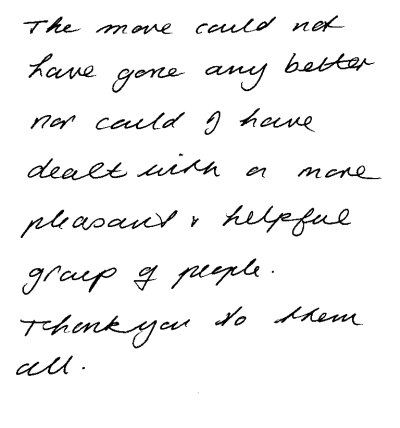 The move could not
have gone any better
nor could I have
dealt with a more
pleasant & helpful
group of people.
Thank you to them
all.